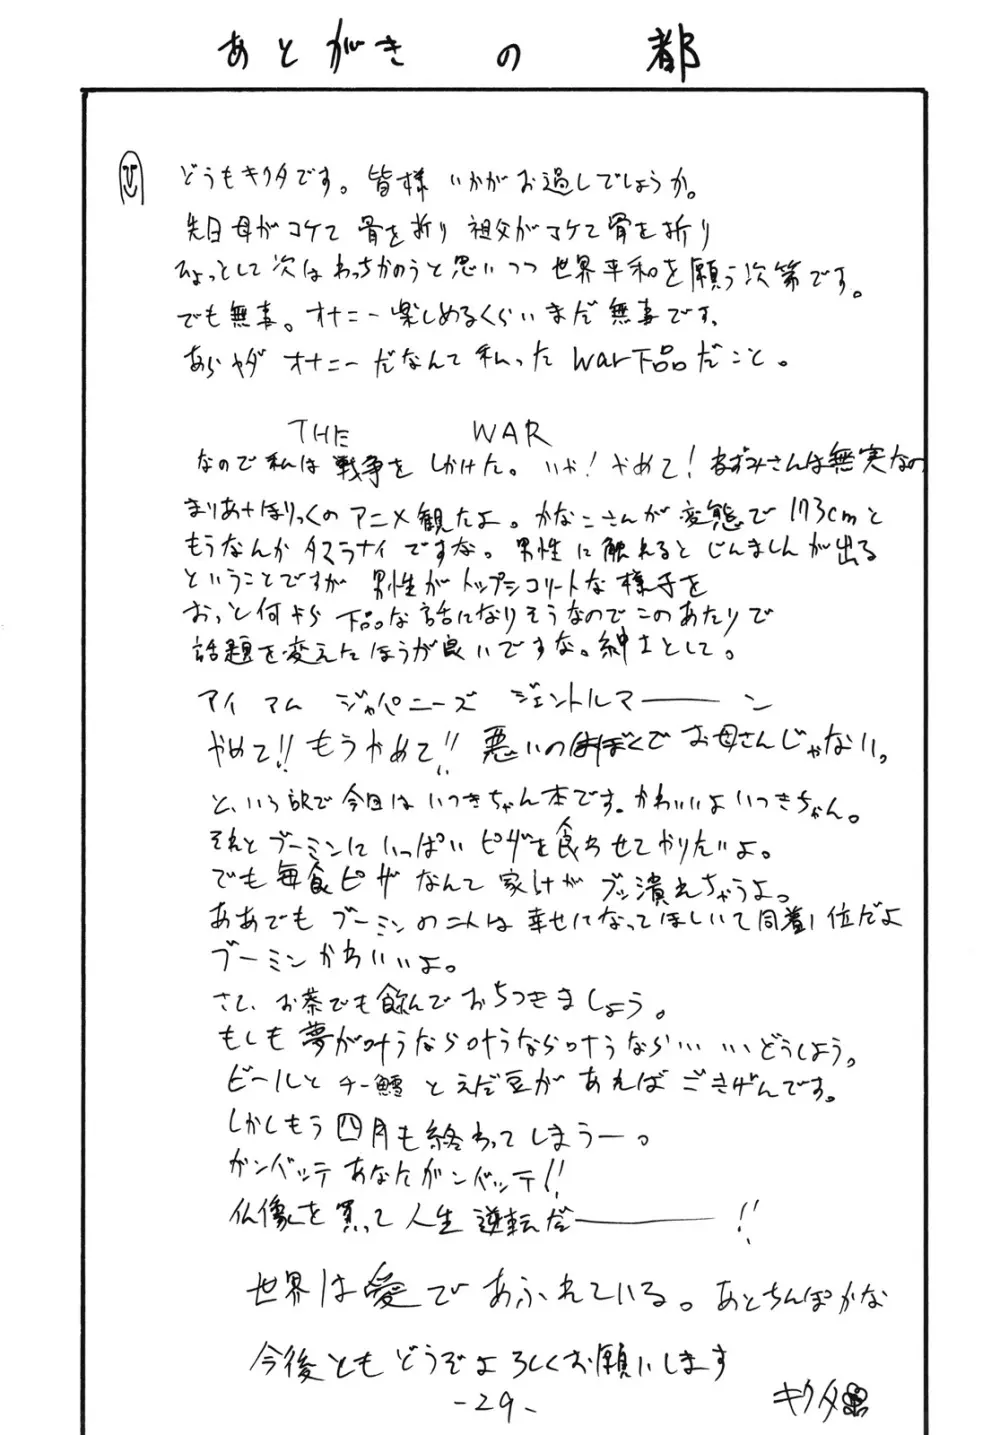 あとがきの都
どうもキクタです。皆様いかがお過しでしょうか。
先日母がコケて骨を折り祖父がコケて骨を折り
ひょっとして次はわっちかのうと思いつつ世界平和を願う次第です。
でも無事。オナニー楽しめるくらいまだ無事です。
あらヤダオナニーだなんて私ったwar下品だこと。
THE WAR
なので私は戦争をしかけた。いや!やめて!ねずみさんは無実なの
まりあ†ほりっくのアニメ観たよ。かなこさんが変態で173cmと
もうなんかタマラナイですな。男性に触れるとじんましんが出る
ということですが男性がトップシコリートな様子を
おっと何やら下品な話になりそうなのでこのあたりで
話題を変えたほうが良いですな。紳士として。
アイ アム ジャパニーズ ジェントルマーーン
やめて!!もうやめて!!悪いのはぼくでお母さんじゃない。
と、いう訳で今日はいつきちゃん本です。かわいいよいつきちゃん。
それとブーミンにいっぱいピザを食わせてやりたいよ。
でも毎食ピザなんて家計がブッ潰れちゃうよ。
ああでもブーミンの二人は幸せになってほしいて同着1位だよ
ブーミンかわいいよ。
さて、お茶でも飲んでおちつきましょう。
もしも夢が叶うなら叶うなら叶うなら……どうしよう。
ビールとチー鱈とえだ豆があればごきげんです。
しかしもう四月も終わってしまうー。
ガンバッテあなたガンバッテ!!
仏像を買って人生逆転だーー!!
世界は愛であふれている。あとちんぽかな
今後ともどうぞよろしくお願いします
キクタ
-29-